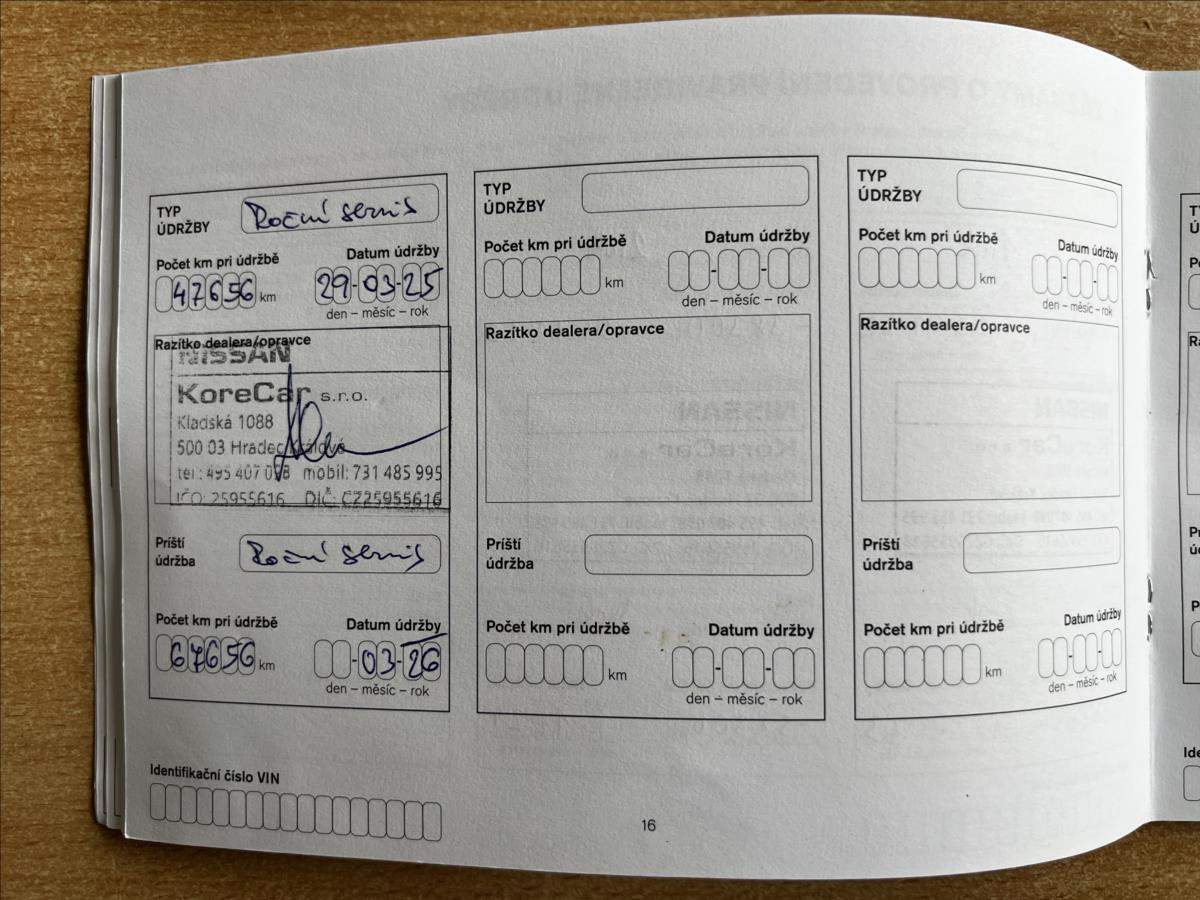 TYP
ÚDRŽBY
Roční servis
Počet km pri údržbě
Datum údržby
47656 km
29-03-25
den – měsíc – rok
Razítko dealera/opravce
NISSAN
KoreCar s.r.o.
Kladská 1088
500 03 Hradec Králové
tel.: 495 407 098 mobil: 731 485 995
IČO: 25955616 DIČ: CZ25955616
Príští
údržba
Roční servis
Počet km pri údržbě
Datum údržby
67656 km
03-26
den – měsíc – rok
TYP
ÚDRŽBY
Počet km pri údržbě
Datum údržby
km
den – měsíc – rok
Razítko dealera/opravce
Príští
údržba
Počet km pri údržbě
Datum údržby
km
den – měsíc – rok
TYP
ÚDRŽBY
Počet km pri údržbě
Datum údržby
km
den – měsíc – rok
Razítko dealera/opravce
Príští
údržba
Počet km pri údržbě
Datum údržby
km
den – měsíc – rok
Identifikační číslo VIN
16